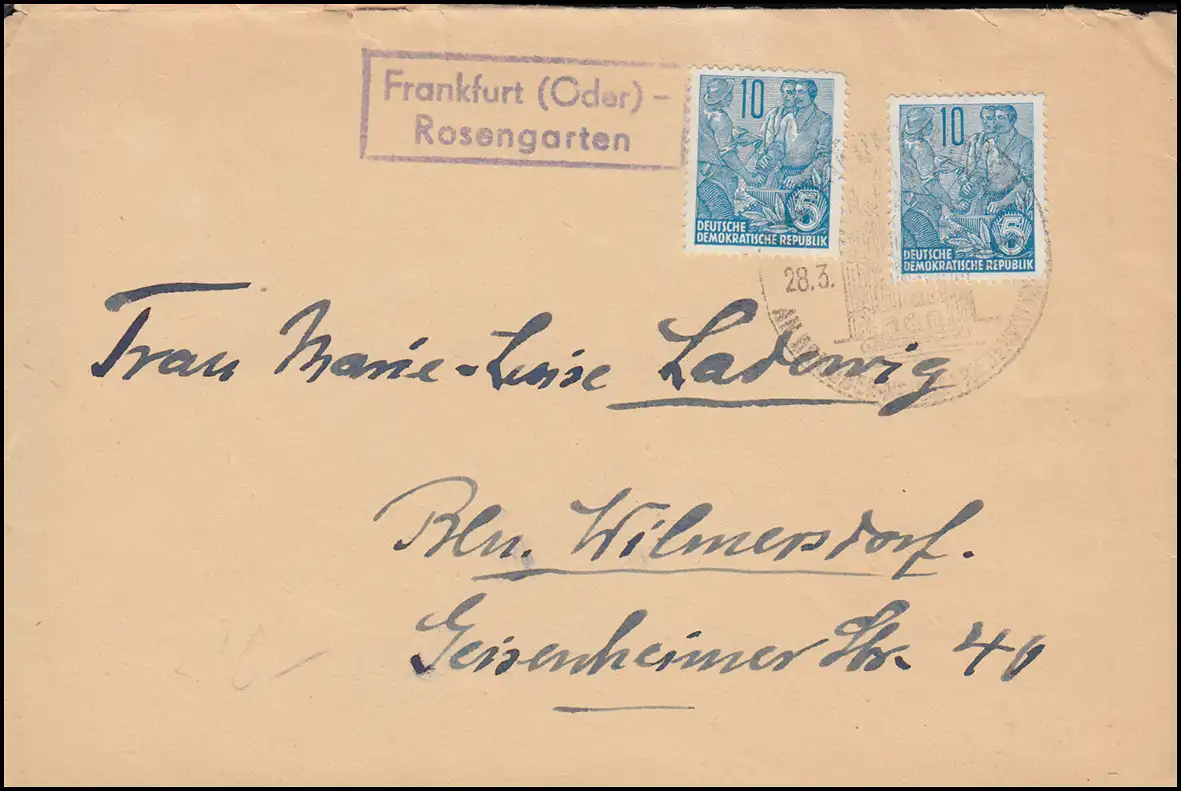 Frankfurt (Oder) -
Rosengarten
10
5
DEUTSCHE
DEMOKRATISCHE REPUBLIK
10
5
DEUTSCHE
DEMOKRATISCHE REPUBLIK
28.3.
Frau Marie-Luise Ladewig
Bln. Wilmersdorf.
Geisenheimer Str. 40